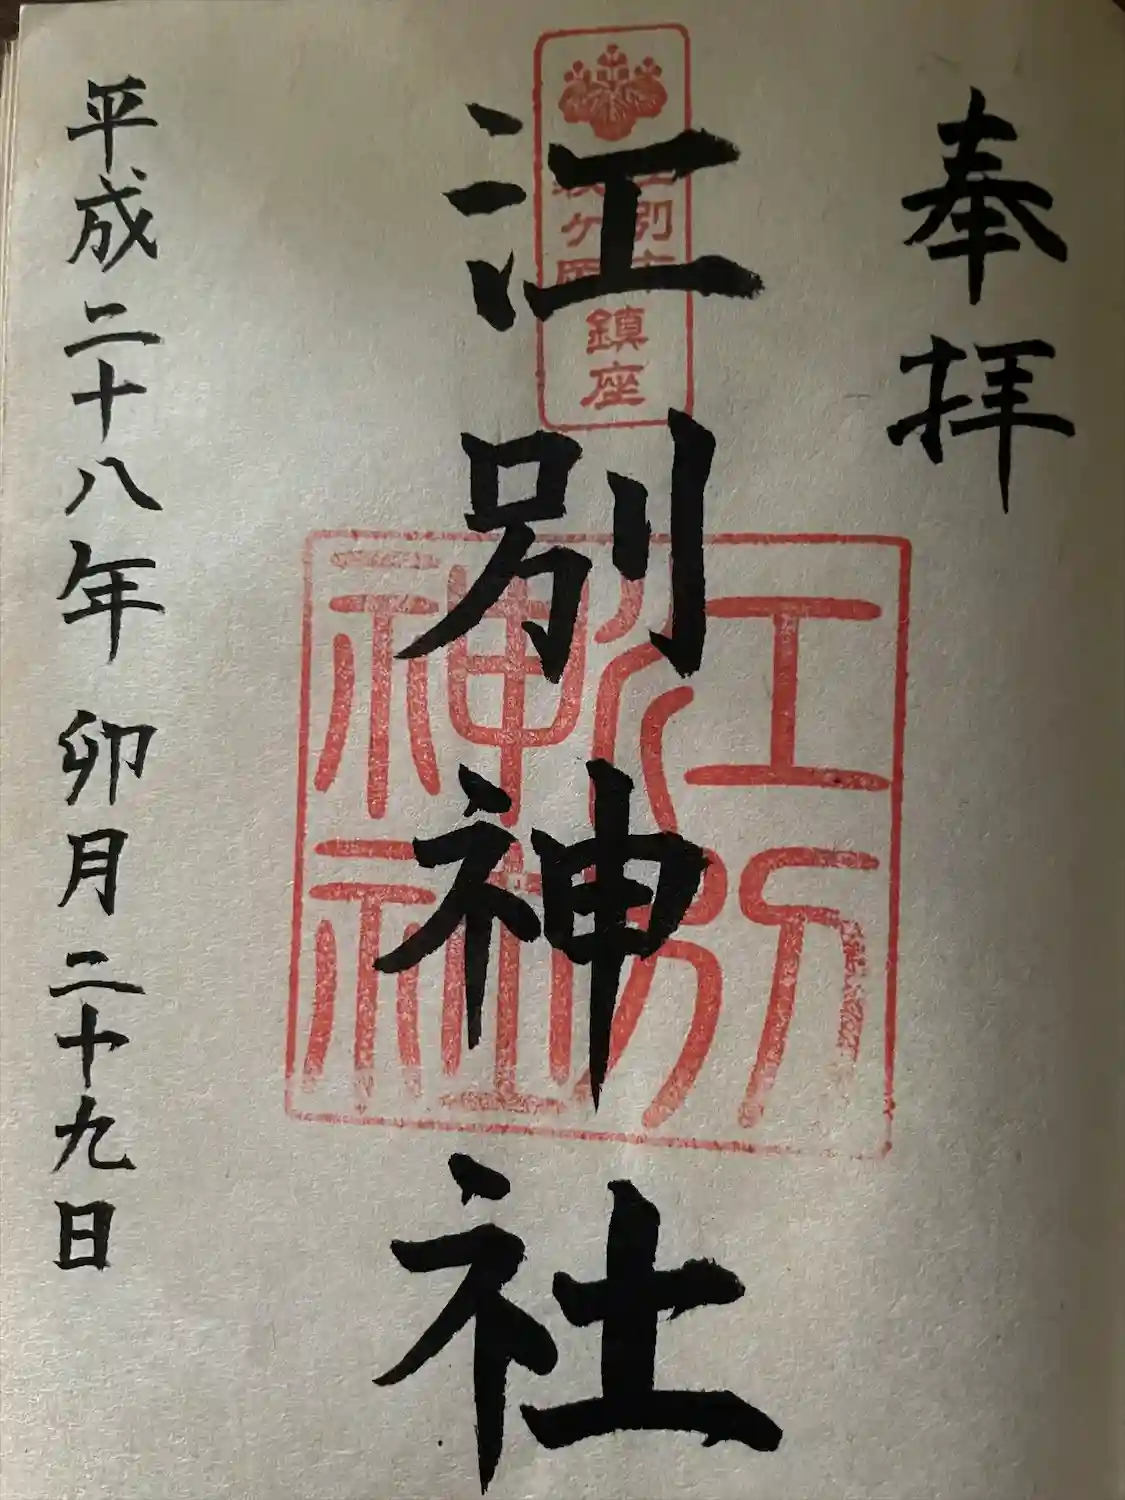 奉拝
江別神社
鎮座
江別神社
平成二十八年 卯月二十九日